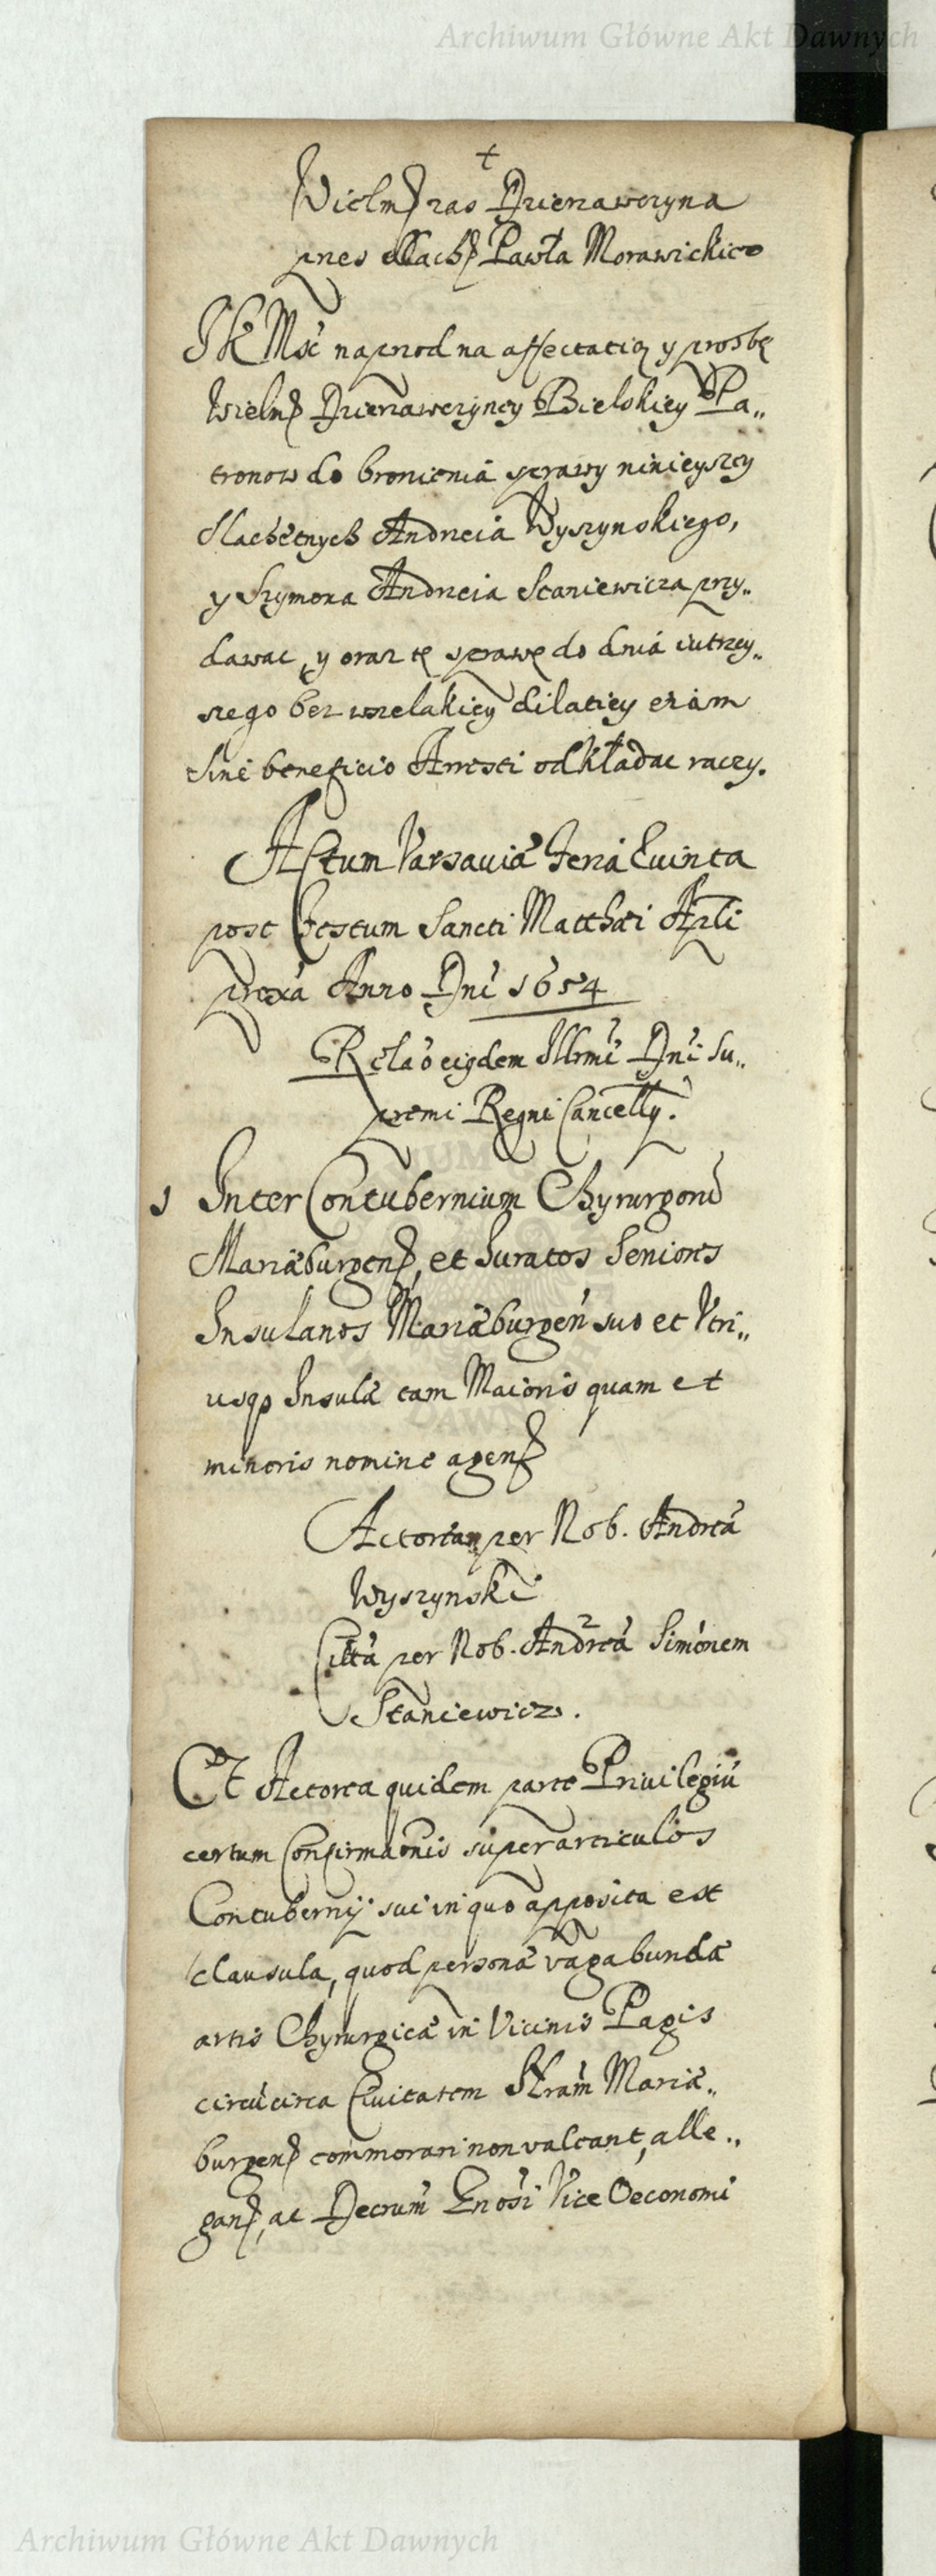 Archiwum Główne Akt Dawnych
†
Wielm zas Dzierzawczyna
przes Slach Pawła Morawickieo
JK Mść naprzod na affectatią y prosbę
Wielm Dzierzawczyney Bielskiey Pa„
tronow do bronienia sprawy ninieyszey
Slachetnych Andrzeia Wyszynskiego,
y Szymona Andrzeia Staniewicza przy„
dawac, y oraz tę sprawę do dnia iutrzey„
szego bez wszelakiey dilatiey etiam
Sine beneficio Arresti odkładac raczy.
Actum Varsaviæ Feria Quinta
post Festum Sancti Matthæi Apli
proxa Anno Dni 1654
Relao eiusdem Illrmi Dni Su„
premi Regni Cancellÿ.
1 Inter Contubernium Chyrurgorũ
Mariæburgen, et Juratos Seniores
Insulanos Mariæburgen suo et Vtri„
usq Insulæ tam Maioris quam et
minoris nomine agen
Actorea per Nob. Andrea
Wyszynski
Citta per Nob. Andrea Simonem
Staniewicz.
Et Actorea quidem parte Privilegiũ
certum Confirmaonis super articulos
Contubernÿ sui in quo apposita est
clausula, quod personæ vagabundæ
artis Chyrurgicæ in Vicinis Pagis
circũcirca Civitatem Nram Mariæ„
burgen commorari non valeant, alle„
gan, ac Decrum Gnosi Vice Oeconomi
Archiwum Główne Akt Dawnych